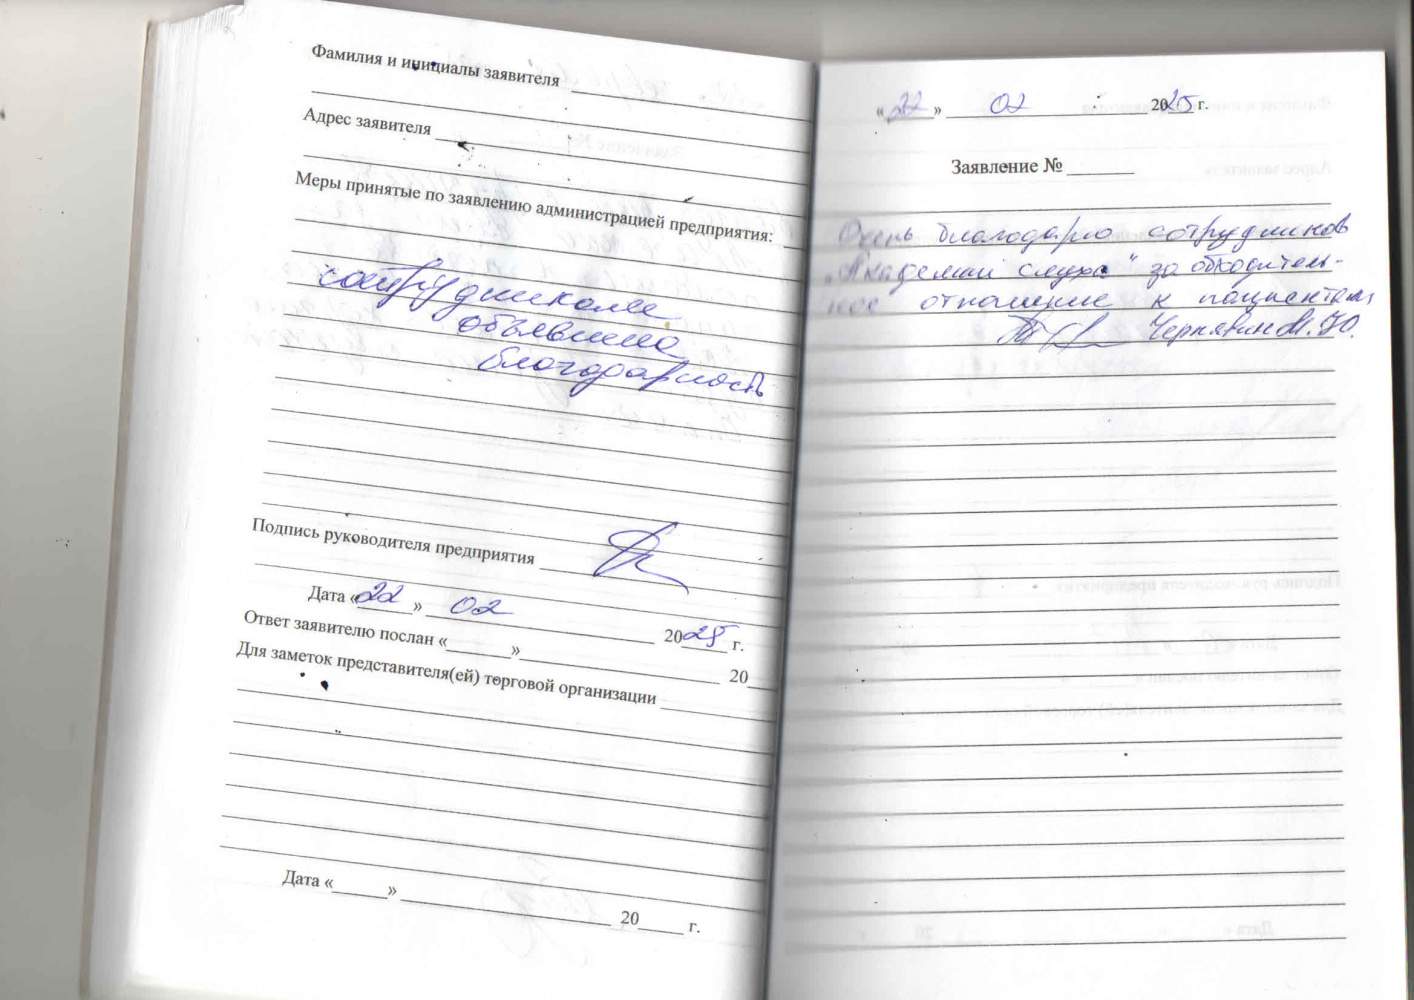 Фамилия и инициалы заявителя
Адрес заявителя
Меры принятые по заявлению администрацией предприятия:
сотрудникам
объявлена
благодарность
Подпись руководителя предприятия
Дата «22» 02 2025 г.
Ответ заявителю послан «______»____________________ 20___
Для заметок представителя(ей) торговой организации
Дата «______» ____________________ 20_____ г.
«22» 02 2025 г.
Заявление № _______
Очень благодарю сотрудников
„Академии слуха“ за обходитель-
ное отношение к пациентам,
Чернявин М.Ю.